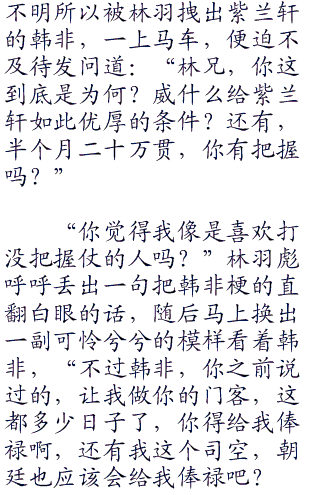 不明所以被林羽拽出紫兰轩
的韩非，一上马车，便迫不
及待发问道：“林兄，你这
到底是为何？威什么给紫兰
轩如此优厚的条件？还有，
半个月二十万贯，你有把握
吗？”
“你觉得我像是喜欢打
没把握仗的人吗？”林羽彪
呼呼丢出一句把韩非梗的直
翻白眼的话，随后马上换出
一副可怜兮兮的模样看着韩
非，“不过韩非，你之前说
过的，让我做你的门客，这
都多少日子了，你得给我俸
禄啊，还有我这个司空，朝
廷也应该会给我俸禄吧？